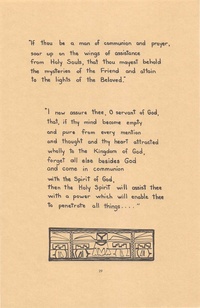 "If thou be a man of communion and prayer,
soar up on the wings of assistance
from Holy Souls, that thou mayest behold
the mysteries of the Friend and attain
to the lights of the Beloved."
"I now assure thee, O servant of God,
that, if thy mind become empty
and pure from every mention
and thought and thy heart attracted
wholly to the Kingdom of God,
forget all else besides God
and come in communion
with the Spirit of God,
then the Holy Spirit will assist thee
with a power which will enable thee
to penetrate all things....."